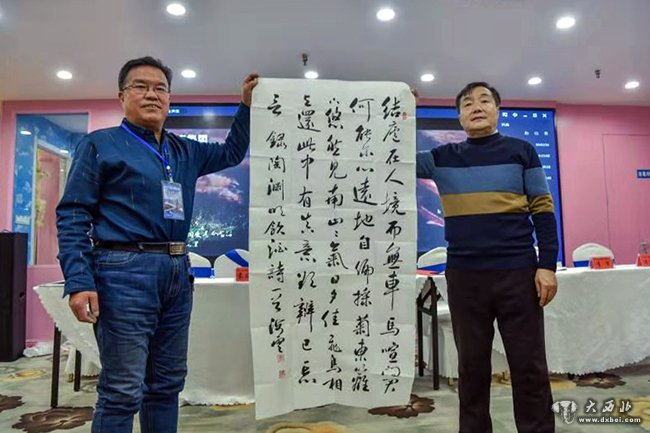 结庐在人境而無車馬喧問君
何能尔心遠地自偏採菊東籬
下悠然见南山々氣日夕佳飛鳥相
与還此中有真意欲辨已忘
言 録陶渊明饮酒詩一首
大西北
www.dxbei.com